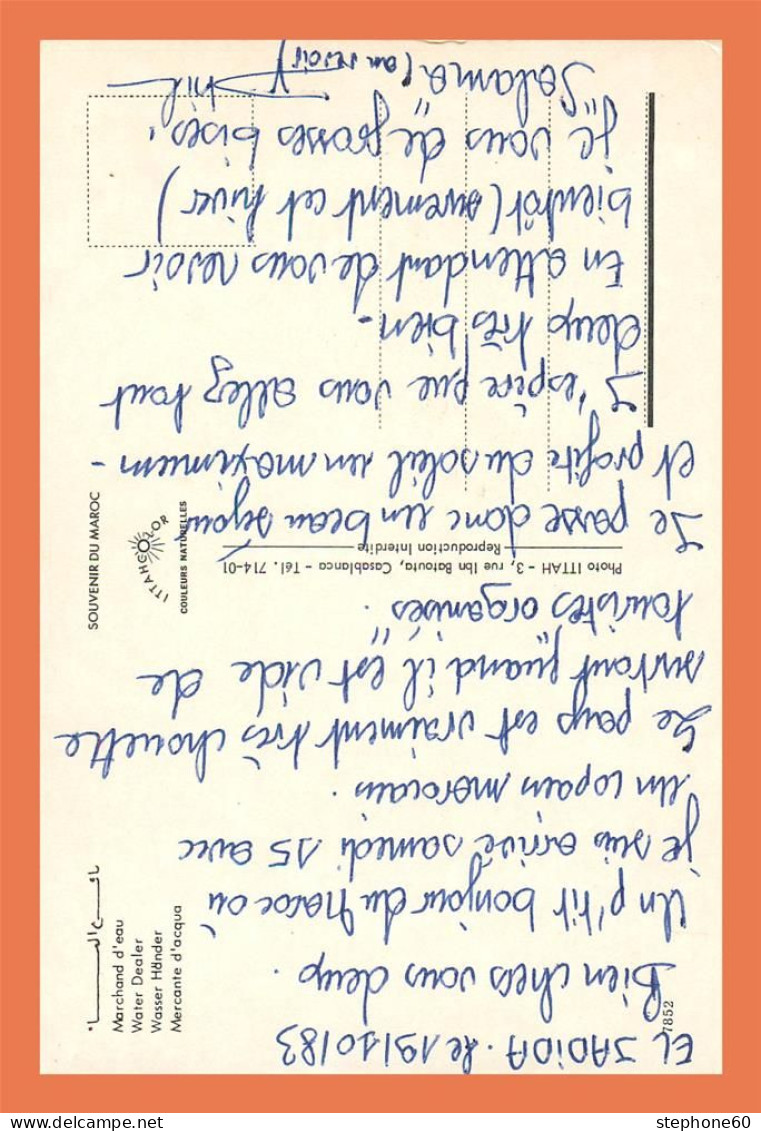 EL JADIDA. le 19/10/83
Bien chers vous deux.
Un p'tit bonjour du Maroc où
je suis arrivé samedi 15 avec
un copain marocain.
Le pays est vraiment très chouette
surtout quand il est vide de
touristes "organisés".
Je passe donc un beau séjour
et profite du soleil un maximum-
J'espère que vous allez tout
deux très bien-
En attendant de vous revoir
bientôt (surement cet hiver)
je vous de grosses bises.
Salama (au revoir)
Marchand d'eau
Water Dealer
Wasser Händer
Mercante d'acqua
SOUVENIR DU MAROC
ITTAHCOLOR
COULEURS NATURELLES
Photo ITTAH - 3, rue Ibn Batouta, Casablanca - Tél. 714-01
Reproduction Interdite
7852
stephone60